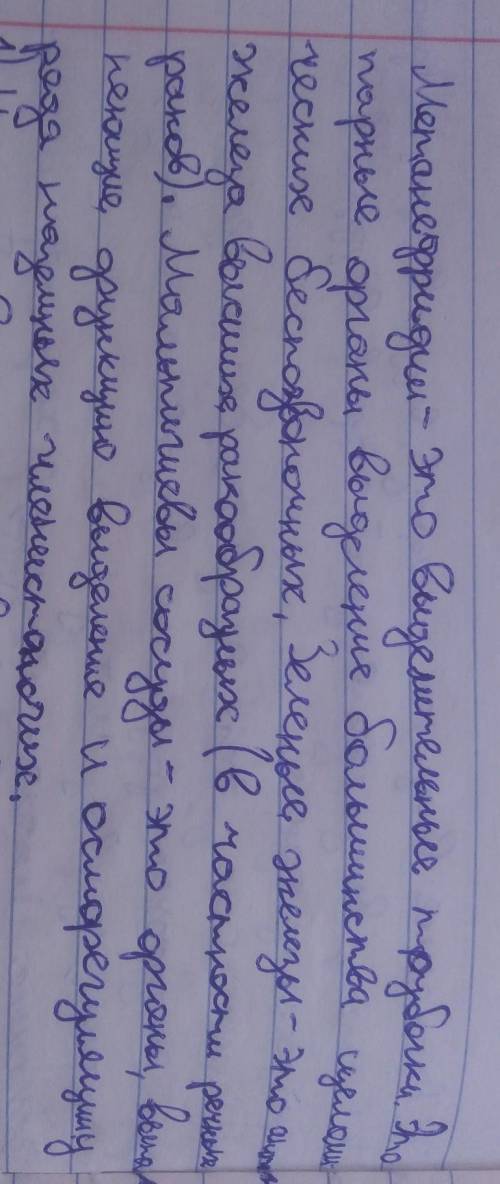 Метанефридии - это выделительные трубочки. Это
парные органы выделение большинства целоми-
ческих беспозвоночных, Зеленые железы - это
железа высших ракообразных (в частности речных
раков). Мальпигиевы сосуды - это органы, выпол
няющие, функцию выделение и осморегуляцию у
ряда наземных членистоногих.
1)